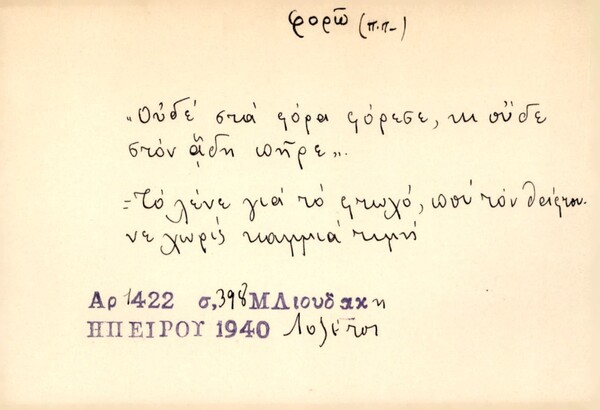 φορῶ (π.π-)
"Οὐδέ στά φόρα φόρεσε, κι οὔδε
στόν ᾅδη πῆρε".
=Τό λένε γιά τό φτωχό, πού τόν θάφτου-
νε χωρίς καμμιά τιμή
Αρ 1422 σ, 398 Μ Λιουδακη
ΗΠΕΙΡΟΥ 1940